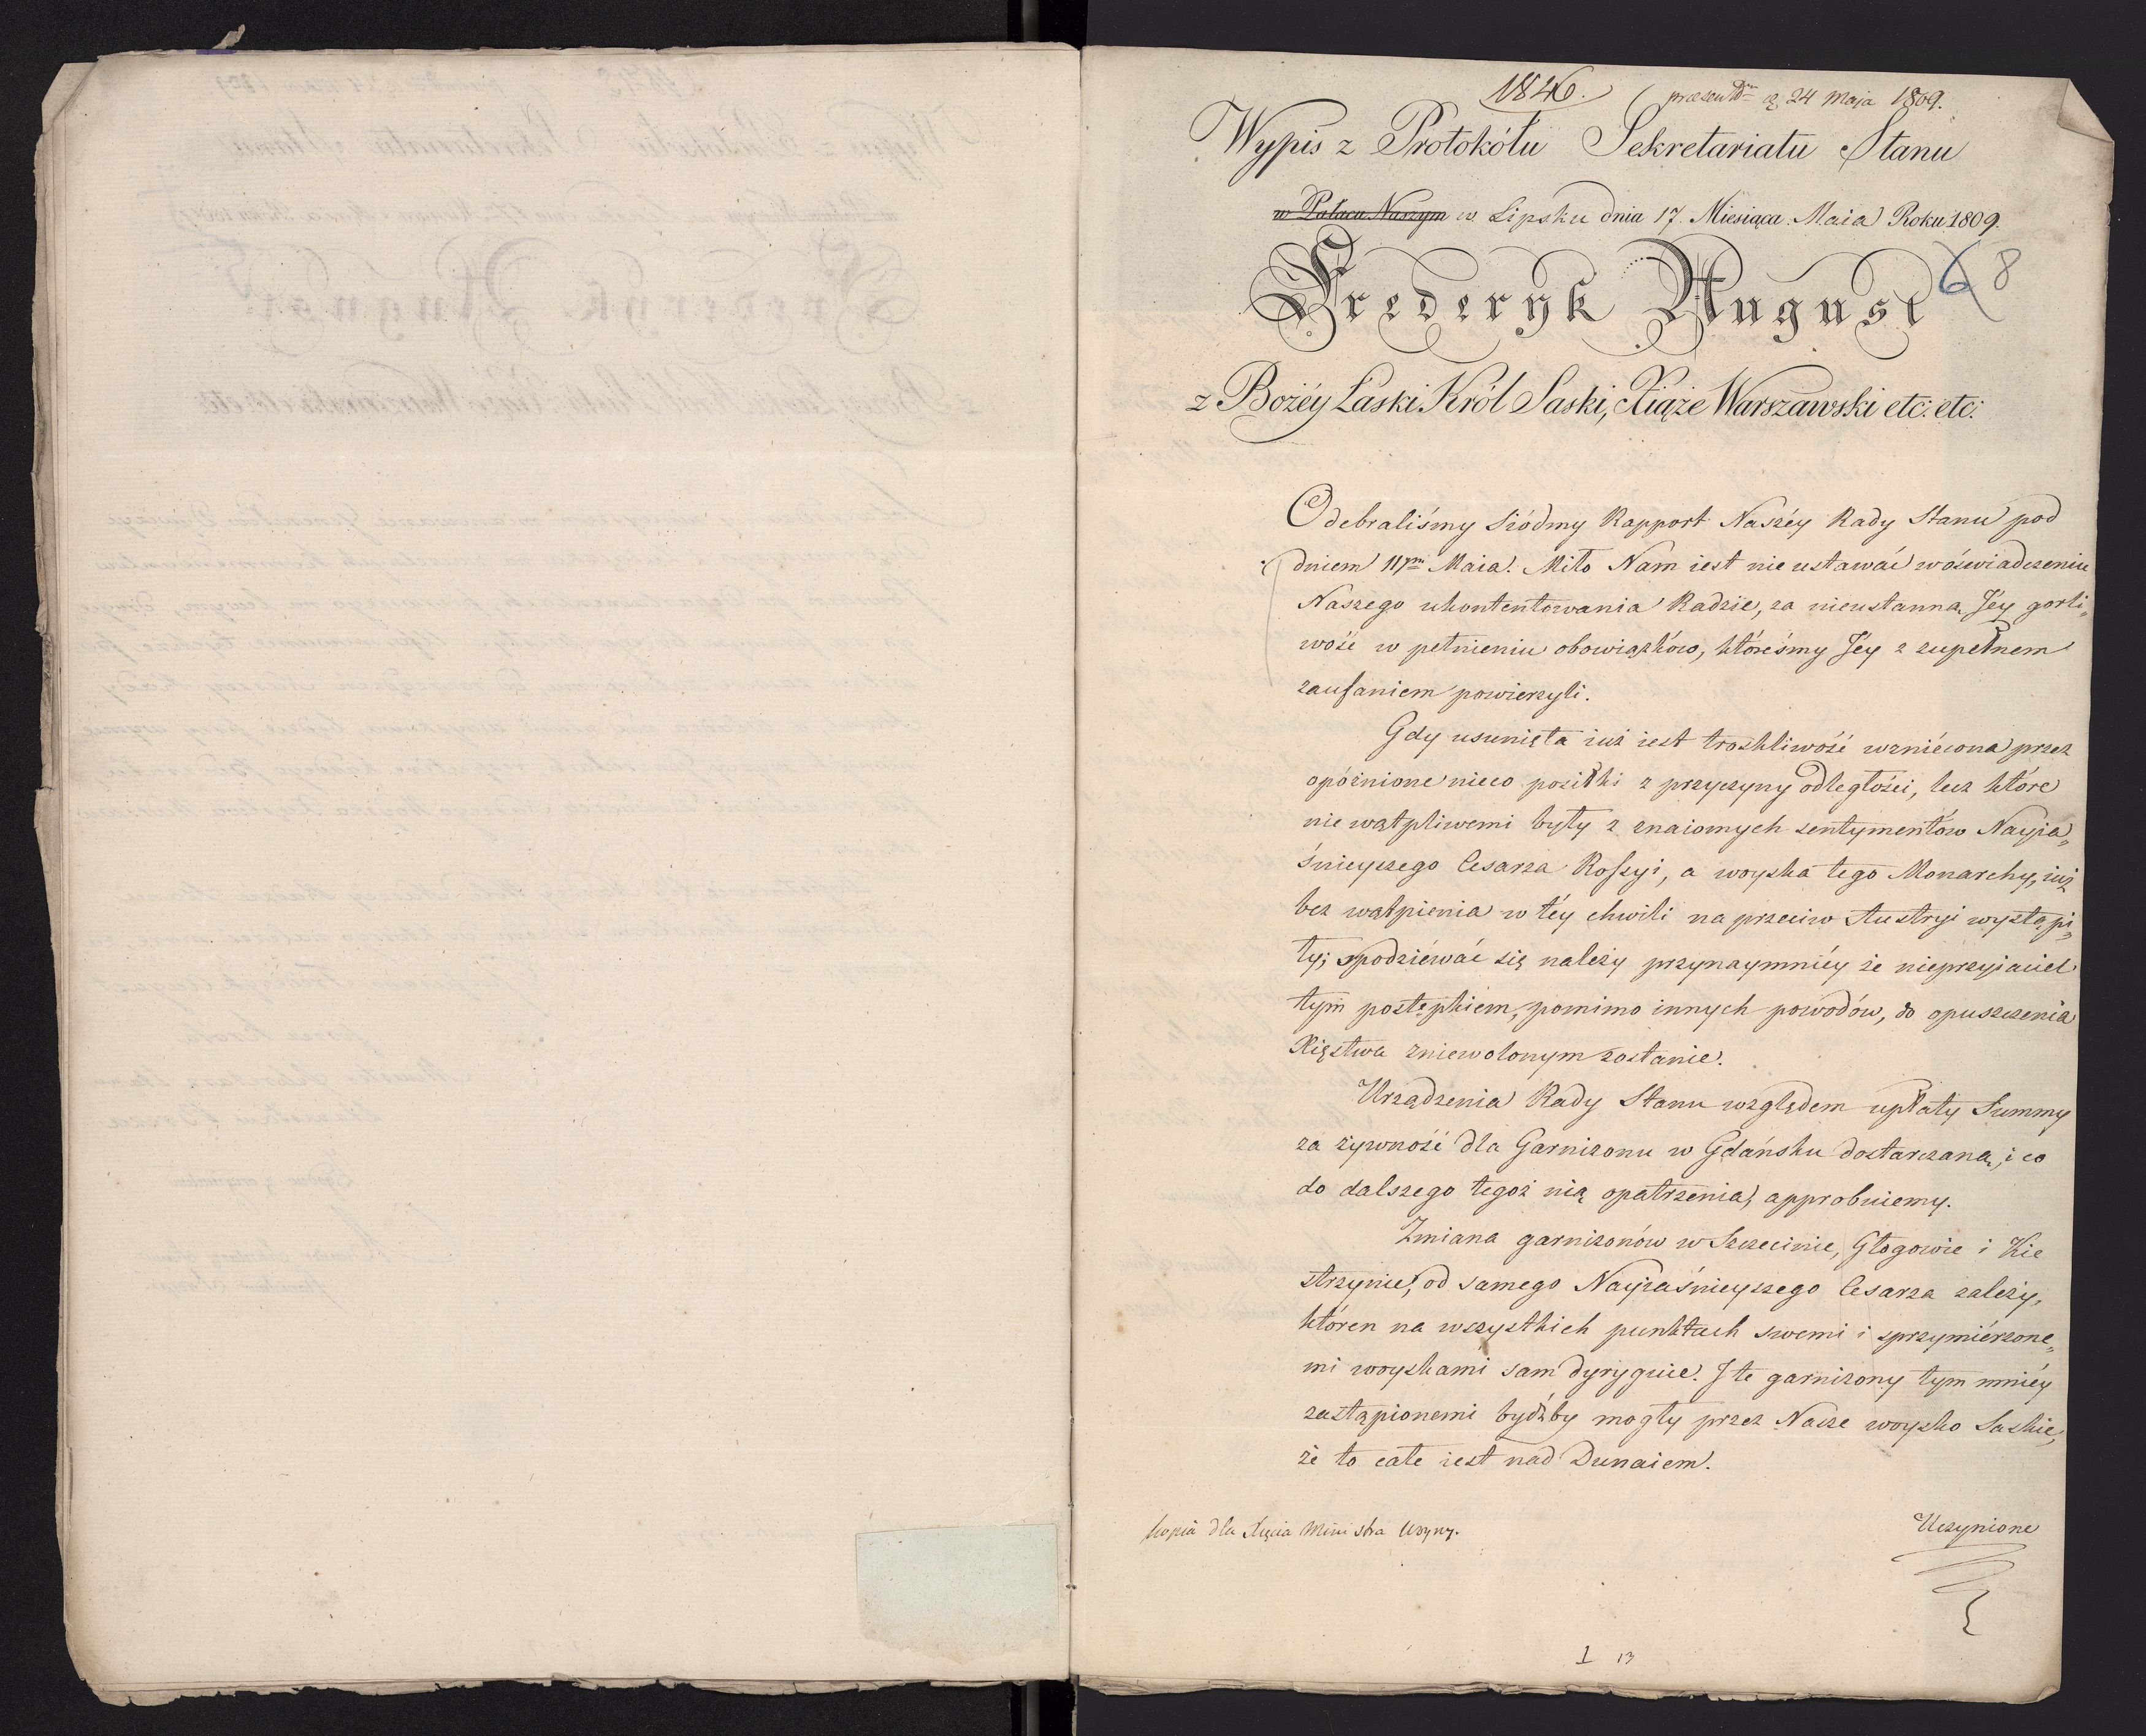 1846. praesentdm d. 24 Maja 1809.
Wypis z Protokółu Sekretariatu Stanu
w Pałacu Naszym w Lipsku dnia 17. Miesiąca Maia Roku 1809.
6 8
Frederyk August
z Bożéy Łaski Król Saski, Xiąże Warszawski etc: etc:
Odebraliśmy siódmy Rapport Naszéy Rady Stanu pod
dniem 11ym Maia. Miło Nam iest nie ustawać w oświadczeniu
Naszego ukontentowania Radzie, za nieustanną Jéy gorli„
wość w pełnieniu obowiązków, któreśmy Jéy z zupełnem
zaufaniem powierzyli.
Gdy usunięta iuż iest troskliwość wzniécona przez
opóźnione nieco posiłki z przyczyny odległości, lecz które
nie wątpliwemi były z znaiomych sentymentów Nayia„
śnieyszego Cesarza Rossyi, a woyska tego Monarchy, iuż
bez wątpienia w téy chwili na przeciw Austryi wystąpi„
ły; spodziéwać się należy przynaymniéy że nieprzyiaciel
tym postępkiem, pomimo innych powodów, do opuszczenia
Xięstwa zniewolonym zostanie.
Urządzenia Rady Stanu względem upłaty Summy
za żywność dla Garnizonu w Gdańsku dostarczaną, i co
do dalszego tegoż nią opatrzenia, approbuiemy.
Zmiana garnizonów w Szczecinie, Głogowie i Kie
strzynie, od samego Nayiaśnieyszego Cesarza zależy,
któren na wszystkich punktach swemi i sprzymiérzone„
mi woyskami sam dyryguie. I te garnizony tym mniéy
zastąpionemi bydźby mogły przez Nasze woysko Saskie,
że to całe iest nad Dunaiem.
Kopia dla Xięcia Ministra Woyny.
Uczynione
1 13